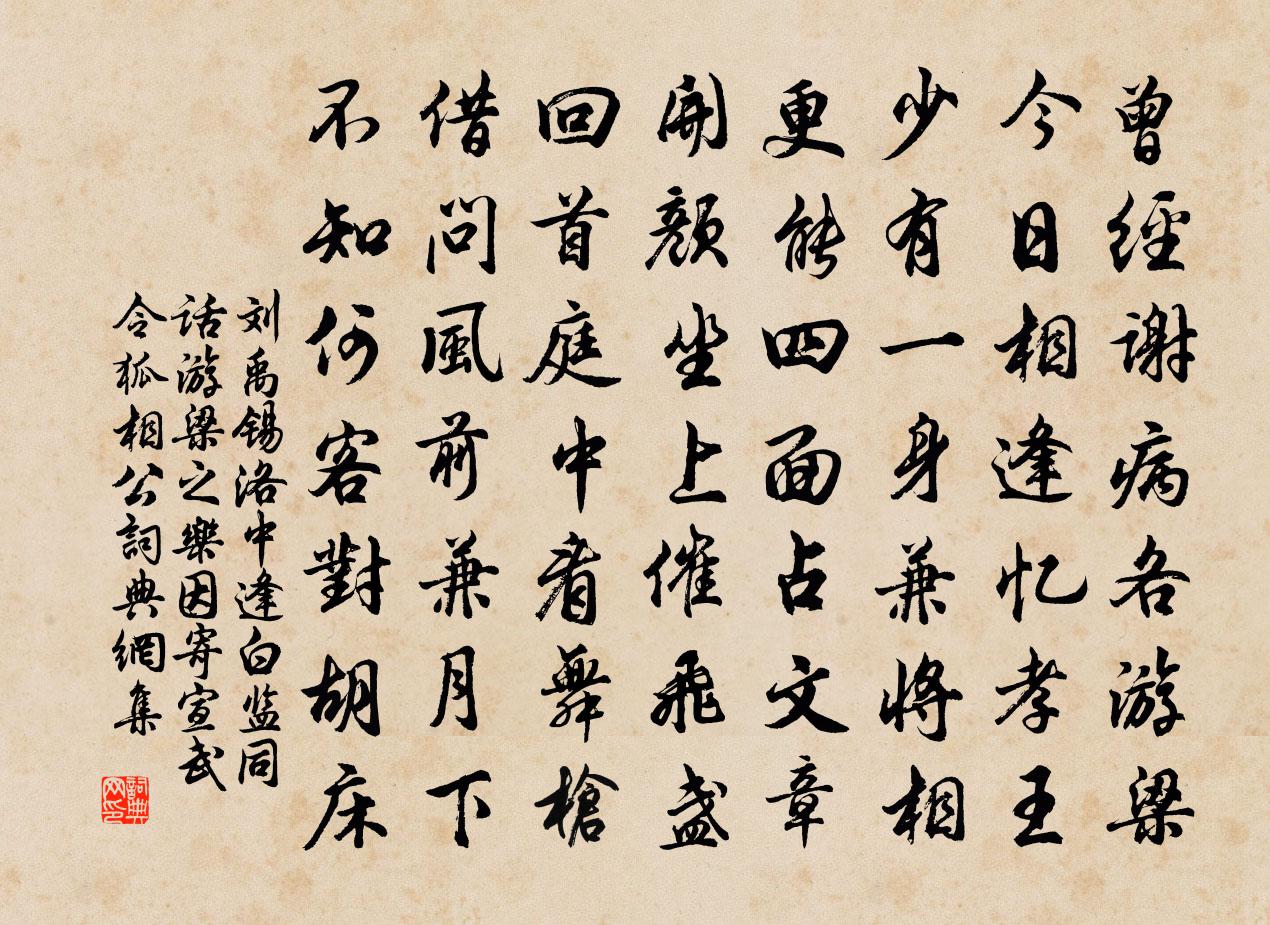 曾經謝病各游梁
今日相逢忆孝王
少有一身兼將相
更能四面占文章
開顏坐上催飛盞
回首庭中看舞槍
借問風前兼月下
不知何客對胡床
刘禹锡洛中逢白监同
话游梁之樂因寄宣武
令狐相公詞典網集
詞典网印